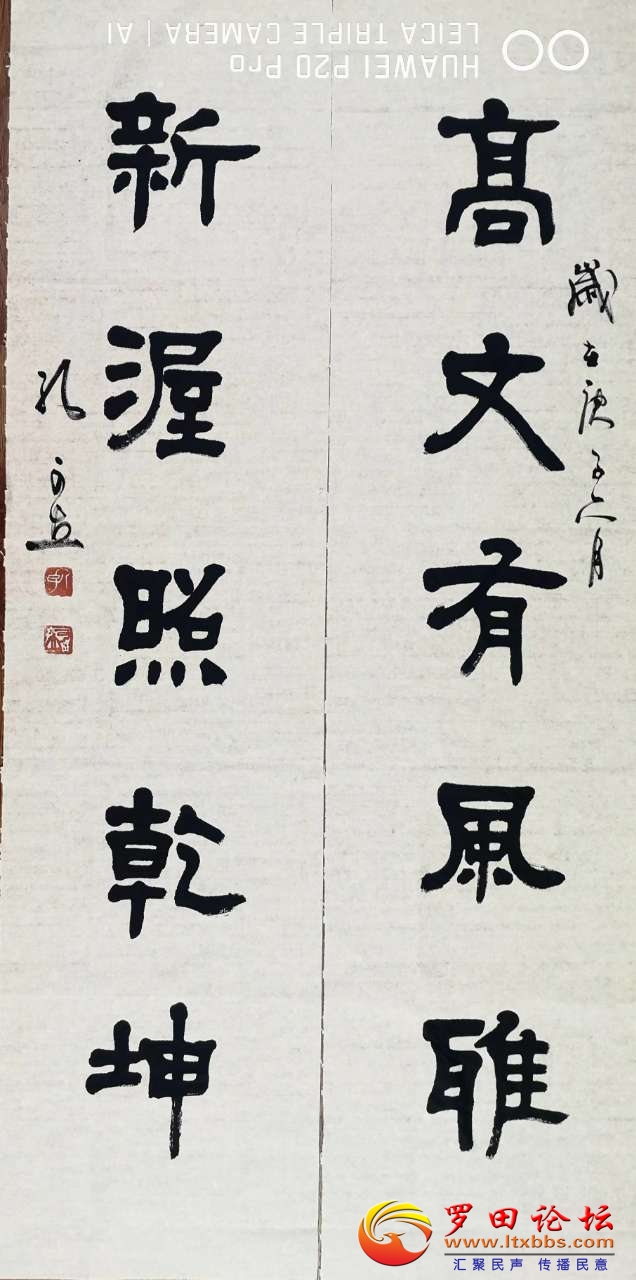 髙文有風雅
歲在庚子六月
新渥照乾坤
HUAWEI P20 Pro
LEICA TRIPLE CAMERA | AI
罗田论坛
www.ltxbbs.com
汇聚民声 传播民意